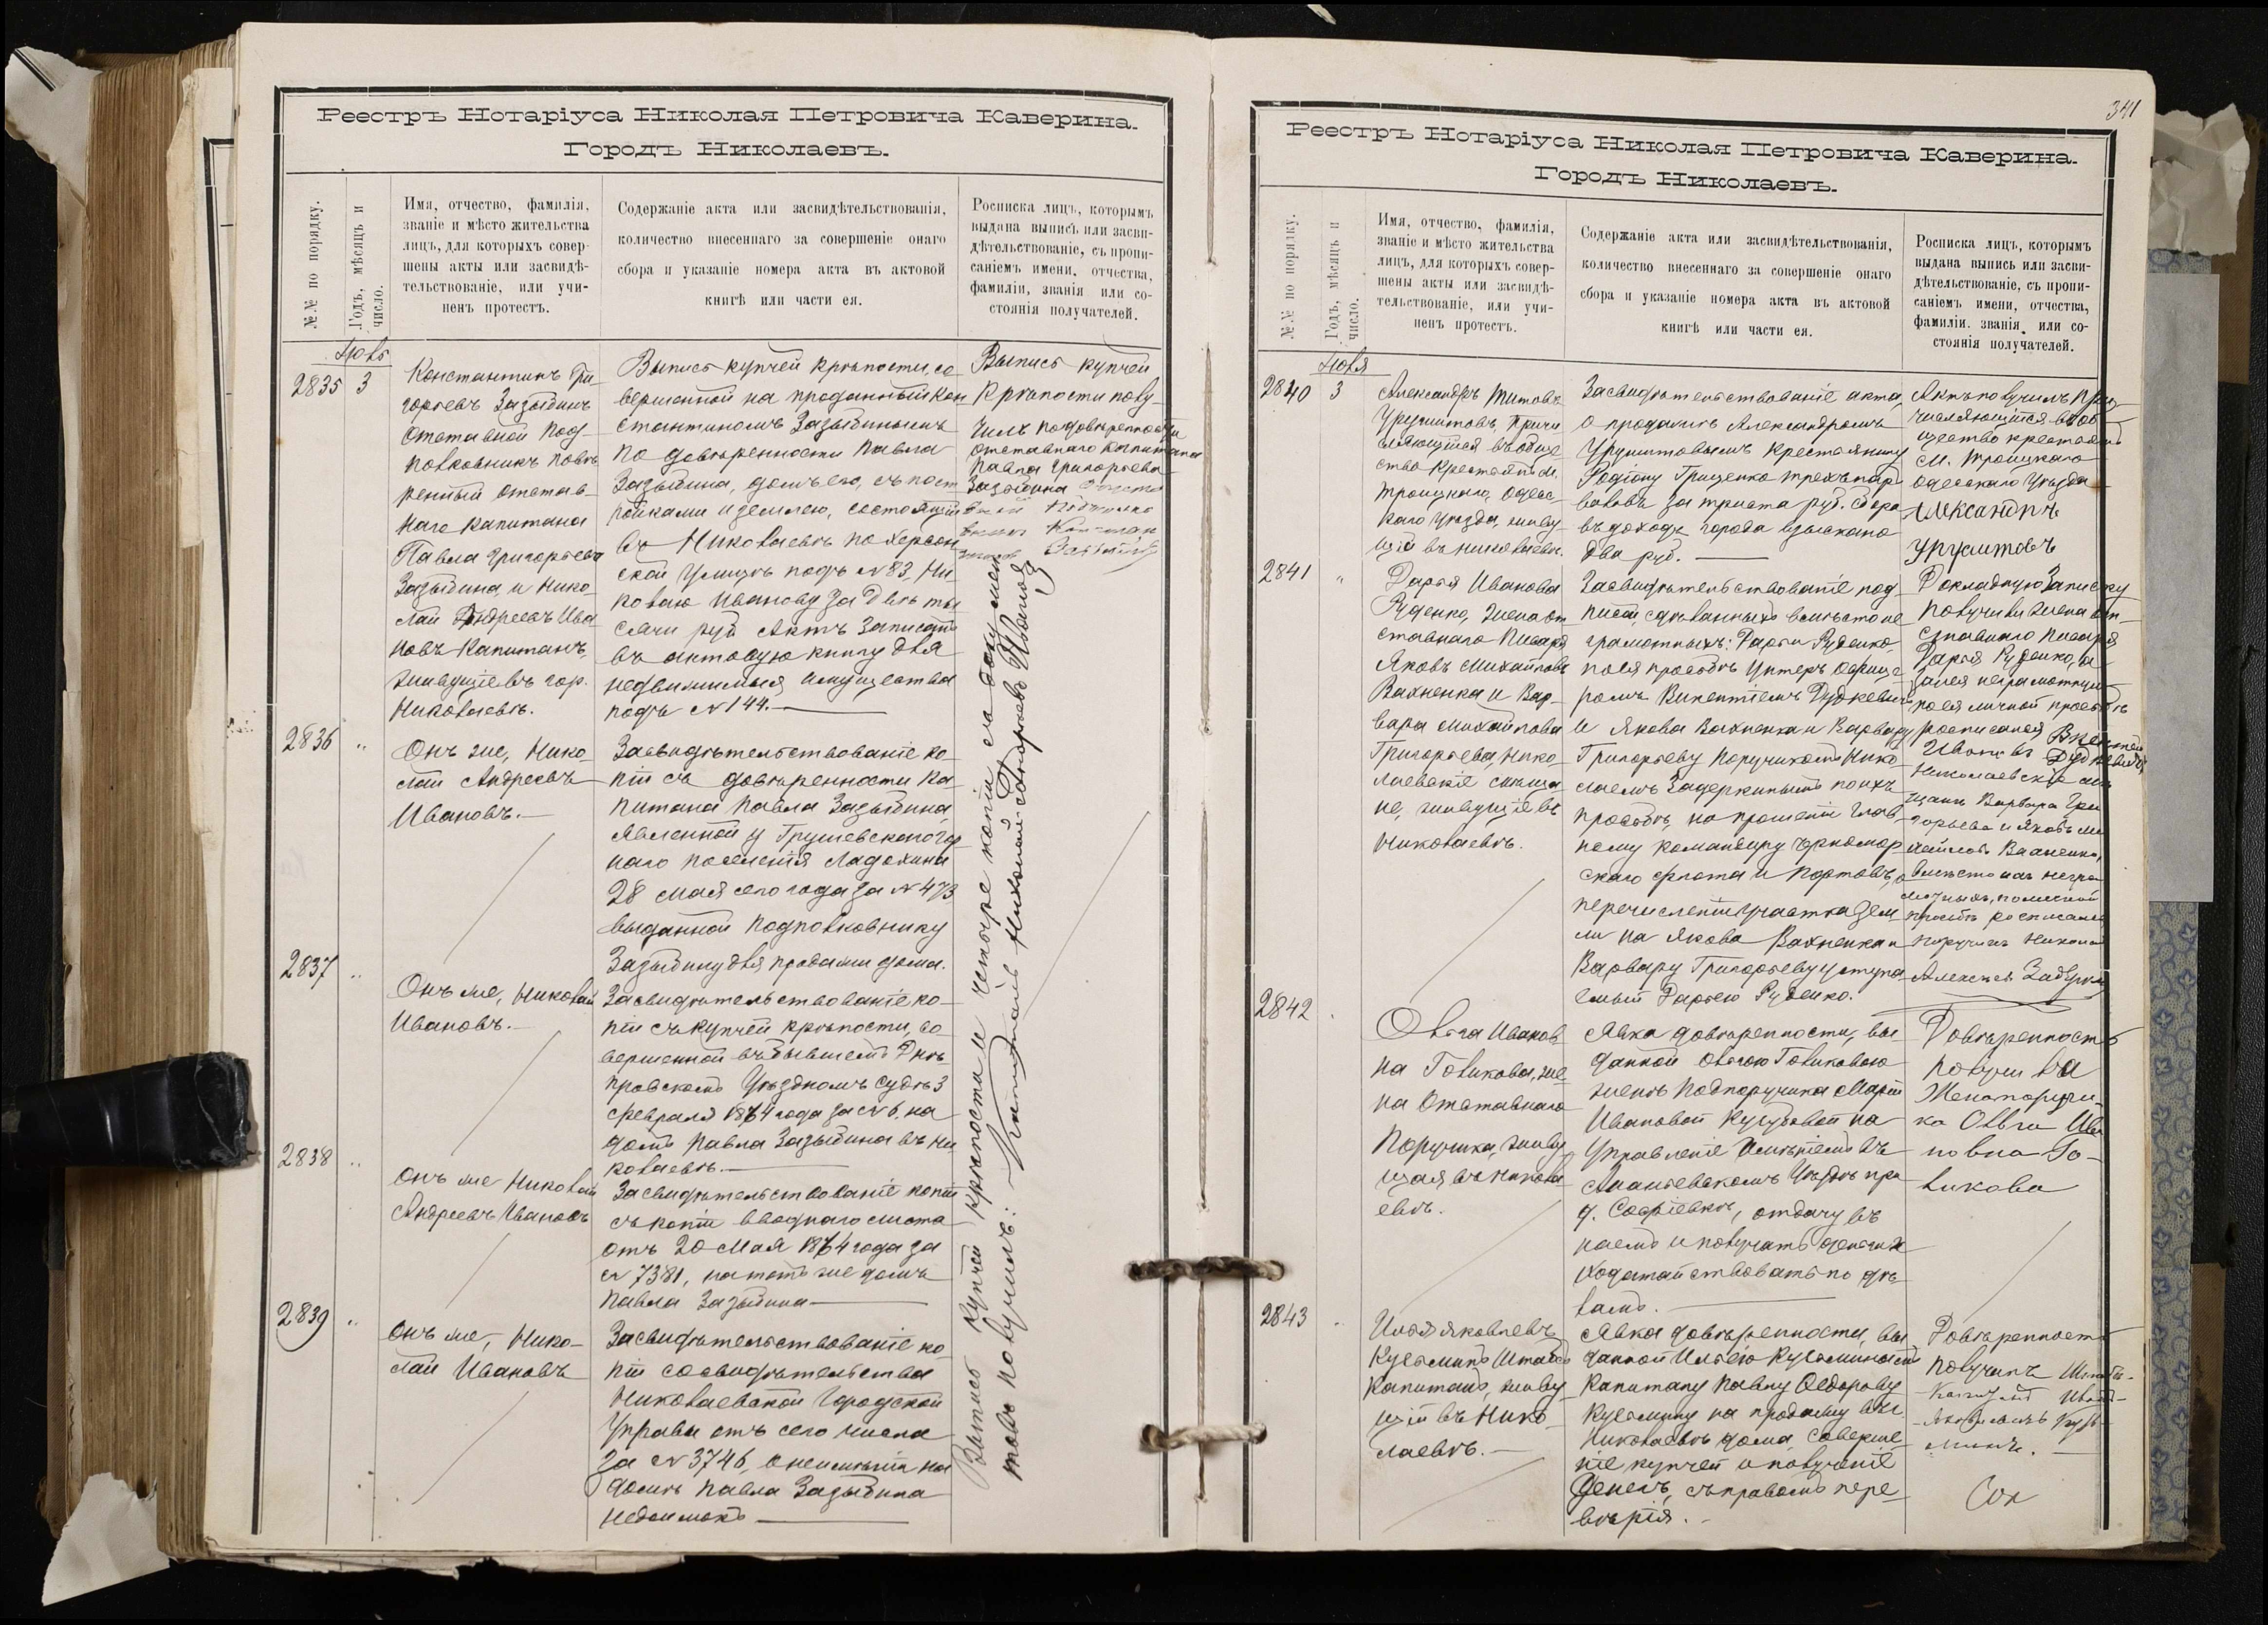 Реестръ Нотаріуса Николая Петровича Каверина.
Городъ Николаевъ.
№№ по порядку.
Годъ, мѣсяцъ и
число.
Имя, отчество, фамилія,
званіе и мѣсто жительства
лицъ, для которыхъ совер-
шены акты или засвидѣ-
тельствованіе, или учи-
ненъ протестъ.
Содержаніе акта или засвидѣтельствованія,
количество внесеннаго за совершеніе онаго
сбора и указаніе номера акта въ актовой
книгѣ или части ея.
Росписка лицъ, которымъ
выдана выпись или засви-
дѣтельствованіе, съ пропи-
саніемъ имени, отчества,
фамиліи, званія или со-
стоянія получателей.
2835 3
Константинъ Гри-
горьевъ Зазыбинъ
отставной Под-
полковникъ повѣ-
ренный отстав-
наго капитана
Павла Григорьева
Зазыбина, и Нико-
лай Андреевъ Ива
новъ Капитанъ,
живущіе въ гор.
Николаевѣ.
Выпись купчей крѣпости, со
вершенной на проданный Кон
стантиномъ Зазыбинымъ
по довѣренности Павла
Зазыбина, домъ его, съ пост
ройками и землею, состоящій
въ Николаевѣ по Херсон
ской улицѣ подъ №83, Ни-
колаю Иванову за двѣ ты
сячи руб. Актъ записанъ
въ актовую книгу для
недвижимыхъ имуществъ
подъ №144.
Выпись купчей
крѣпости полу-
чилъ по довѣренности
отставнаго капитана
Павла Григорьева
Зазыбина
2836 "
Онъ же, Нико-
лай Андреевъ
Ивановъ.
Засвидѣтельствованіе ко-
піи съ довѣренности Ка-
питана Павла Зазыбина,
явленной у Грушевскаго Гор
наго поселенія
28 Мая сего года за №473,
выданной Подполковнику
Зазыбину для продажи дома.
2837 "
Онъ же, Николай
Ивановъ.
Засвидѣтельствованіе ко-
піи съ купчей крѣпости, со
вершенной въ бывшемъ Днѣ-
провскомъ Уѣздномъ Судѣ 3
февраля 1864 года за №6, на
домъ Павла Зазыбина въ Ни
колаевѣ.
2838 "
Онъ же Николай
Андреевъ Ивановъ
Засвидѣтельствованіе копіи
съ копіи вводнаго листа
отъ 20 Мая 1864 года за
№7381, на тотъ же домъ
Павла Зазыбина
2839 "
Онъ же, Нико-
лай Ивановъ
Засвидѣтельствованіе ко-
піи со свидѣтельства
Николаевской Городской
Управы отъ сего числа
за №3746, о неимѣніи на
домѣ Павла Зазыбина
недоимокъ
Выпись купчей крѣпости и четыре копіи съ документовъ
получилъ: Капитанъ Николай Андреевъ Ивановъ
341
Реестръ Нотаріуса Николая Петровича Каверина.
Городъ Николаевъ.
№№ по порядку.
Годъ, мѣсяцъ и
число.
Имя, отчество, фамилія,
званіе и мѣсто жительства
лицъ, для которыхъ совер-
шены акты или засвидѣ-
тельствованіе, или учи-
ненъ протестъ.
Содержаніе акта или засвидѣтельствованія,
количество внесеннаго за совершеніе онаго
сбора и указаніе номера акта въ актовой
книгѣ или части ея.
Росписка лицъ, которымъ
выдана выпись или засви-
дѣтельствованіе, съ пропи-
саніемъ имени, отчества,
фамиліи. званія или со-
стоянія получателей.
2840 3
Александръ Титовъ
Урушитовъ, причи
сляющійся въ обще
ство крестьянъ м.
Троицкаго, Одесс-
каго уѣзда, живу
щій въ Николаевѣ.
Засвидѣтельствованіе акта,
о продажѣ Александромъ
Урушитовымъ крестьянину
Родіону Грищенко трехъ пар
воловъ за триста руб. Сбора
въ доходъ города взыскано
два руб.
Актъ получилъ при-
числяющійся въ об
щество крестьянъ
м. Троицкаго
Одесскаго уѣзда
Александръ
Урушитовъ
2841 "
Дарья Иванова
Руденко, жена от
ставнаго писаря
Яковъ Михайловъ
Вахненка и Вар-
вара Михайлова
Григорьева, Нико
лаевскіе мѣща
не, живущіе въ
Николаевѣ.
Засвидѣтельствованіе под-
писей сдѣланныхъ вмѣсто не
грамотныхъ: Дарьи Руденко,
по ея просьбѣ Унтеръ Офице
ромъ Викентіемъ Дудкевичемъ
и Якова Вахненка и Варвары
Григорьевой Поручикомъ Нико
лаемъ Задеркинымъ по ихъ
просьбѣ, на прошеніи Глав
ному командиру Черномор
скаго флота и портовъ, о
перечисленіи участка зем
ли на Якова Вахненка и
Варвару Григорьеву уступа
емый Дарьею Руденко.
Докладную записку
получила жена от-
ставнаго писаря
Дарья Руденко, а
за нея неграмотную
по ея личной просьбѣ
росписался
Николаевскіе мѣ
щане Варвара Гри
горьева и Яковъ Ми
хайловъ Вахненко,
вмѣсто ихъ негра
мотныхъ, по личной
просьбѣ росписался
поручикъ Николай
2842
Ольга Иванов
на Голикова, же
на отставнаго
Поручика, живу
щая въ Никола
евѣ.
Явка довѣренности, вы
данной Ольгою Голиковою
женѣ Подпоручика Маріи
Ивановой на
управленіе имѣніемъ въ
Ананьевскомъ уѣздѣ при
д. Софіевкѣ, отдачу въ
наемъ и получать деньги и
ходатайствовать по дѣ-
ламъ.
Довѣренность
получила
Жена поручи-
ка Ольга Ива
новна Го-
ликова
2843
Илья Яковлевъ
Кузьминъ Штабсъ
Капитанъ, живу
щій въ Нико-
лаевѣ.
Явка довѣренности, вы
данной Ильею Кузьминымъ
Капитану Павлу Федорову
Кузьмину на продажу въ г.
Николаевѣ дома, соверше
ніе купчей и полученіе
денегъ, съ правомъ пере-
вѣрія.
Довѣренность
получилъ Штабсъ-